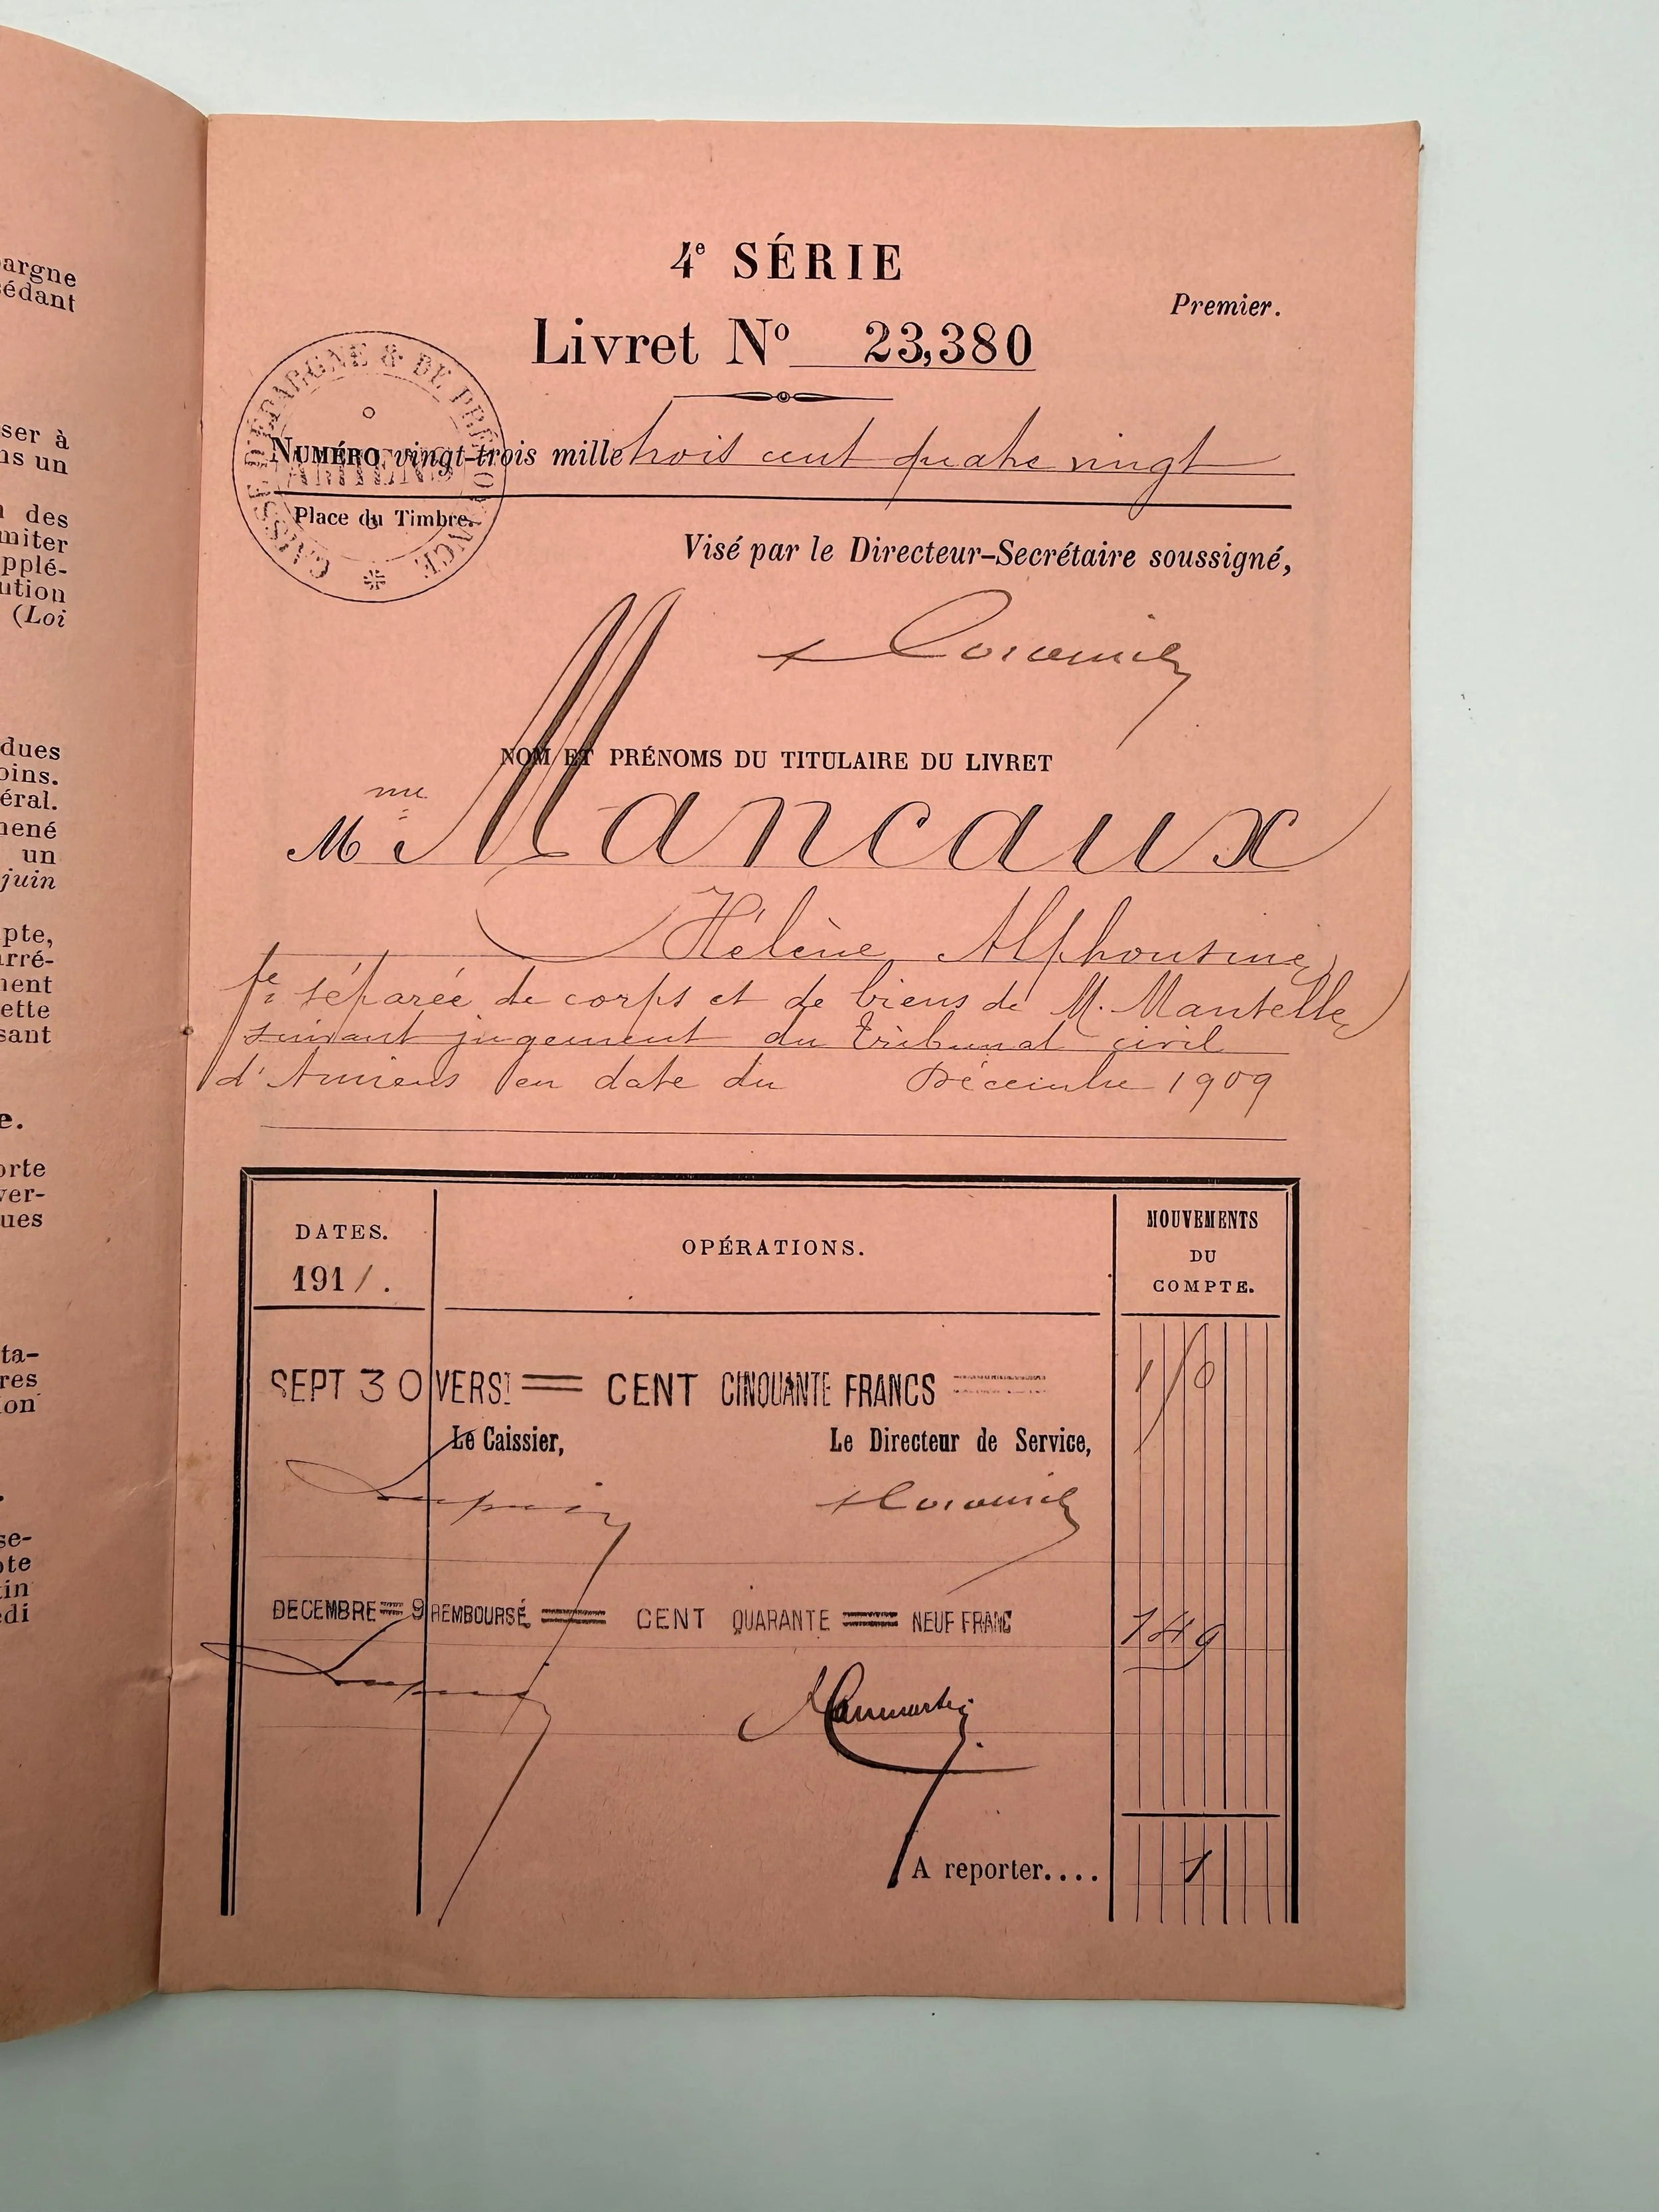 argne
sédant
ser à
ns un
des
miter
pplé-
ution
(Loi
dues
oins.
éral.
mené
un
juin
pte,
arré-
ment
ette
sant
e.
orte
ver-
ues
ta-
res
ion
se-
pte
tin
edi
4e SÉRIE
Premier.
Livret No 23,380
CAISSE D'ÉPARGNE & DE PRÉVOYANCE
AMIENS
NUMÉRO vingt-trois mille trois cent quatre vingt
Place du Timbre.
Visé par le Directeur-Secrétaire soussigné,
NOM ET PRÉNOMS DU TITULAIRE DU LIVRET
Mme Mancaux
Hélène Alphonsine
fe séparée de corps et de biens de M. Mantelle
suivant jugement du Tribunal civil
d'Amiens en date du Décembre 1909
DATES.
1911.
OPÉRATIONS.
MOUVEMENTS
DU
COMPTE.
SEPT 30 VERST = CENT CINQUANTE FRANCS 150
Le Caissier, Le Directeur de Service,
DECEMBRE = 9 REMBOURSÉ = CENT QUARANTE = NEUF FRANC 149
A reporter.... 1